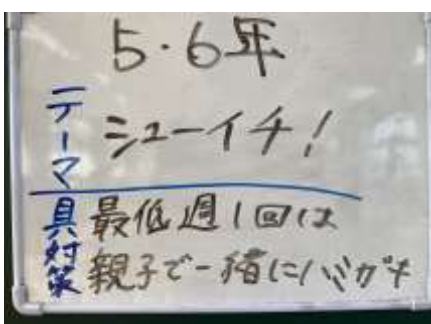 5・6年
テーマ
シューイチ!
具対策
最低週1回は
親子で一緒にハミガキ